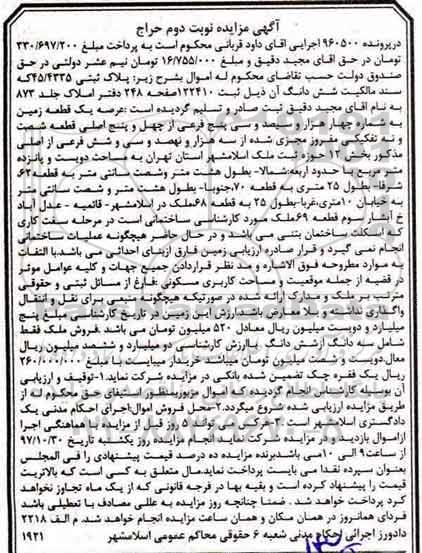 آگهی مزایده نوبت دوم حراج
درپرونده ۹۶۰۵۰۰ اجرایی آقای داود قربانی محکوم است به پرداخت مبلغ ۳۳۰/۶۹۷/۲۰۰
تومان در حق آقای مجید دقیق و مبلغ ۱۶/۷۵۵/۰۰۰ تومان نیم عشر دولتی در حق
صندوق دولت حسب تقاضای محکوم له اموال بشرح زیر: پلاک ثبتی ۴۵/۴۳۳۵که
سند مالکیت شش دانگ آن ذیل ثبت ۱۲۲۴۱۰صفحه ۲۴۸ دفتر املاک جلد ۸۷۳
به نام آقای مجید دقیق ثبت صادر و تسلیم گردیده است :عرصه یک قطعه زمین
به شماره چهار هزار و سیصد و سی پنج فرعی از چهل و پنج اصلی قطعه شصت
و نه تفکیکی مفروز مجزی شده از سه هزار و نهصد و سی و شش فرعی از اصلی
مذکور بخش حوزه ثبت ملک اسلامشهر استان تهران به مساحت دویست و پانزده
متر مربع با حدود اربعه:شمالا- بطول هشت متر وشصت سانتی متر به قطعه ۶۲،
شرقا- بطول ۲۵ متری به قطعه ۷۰،جنوبا- بطول هشت متر و شصت سانتی متر
به خیابان ۱۰متری،غربا-بطول ۲۵ به قطعه ۶۸ملک در اسلامشهر - قائمیه - عدل آباد
خ آبشار سوم قطعه ۶۹ملک مورد کارشناسی ساختمانی است در مرحله سفت کاری
که اسکلت ساختمان بتنی می باشد و در حال حاضر هیچگونه عملیات ساختمانی
انجام نمی گیرد و قرار صادره ارزیابی زمین فارق ازبنای احداثی می باشد.با التفات
به موارد مطروحه فوق الاشاره و مد نظر قراردادن جمیع جهات و کلیه عوامل موثر
در قضیه از جمله موقعیت و مساحت کاربری مسکونی ،فارغ از مسائل ثبتی و حقوقی
مترتب بر ملک و مدارک ارائه شده در صورتیکه هیچگونه منعی برای نقل و انتقال
واگذاری نداشته و بلا معارض باشدارزش این زمین در تاریخ کارشناسی مبلغ پنج
میلیارد و دویست میلیون ریال معادل ۵۲۰ میلیون تومان می باشد .فروش ملک فقط
شامل سه دانگ ازشش دانگ باارزش کارشناسی دو میلیارد و ششصد میلیون ریال
معادل.دویست و شصت میلیون تومان میباشد خریدار میبایست با مبلغ ۲۶۰/۰۰۰/۰۰۰
ریال یک فقره چک تضمین شده بانکی در مزایده شرکت نماید.۱-توقیف و ارزیابی
آن بوسیله کارشناس انجام گردیده که اموال مزبوربمنظور استیفای حق محکوم له از
طریق مزایده ارزیابی شده شروع میگردد.۲-محل فروش اموال:اجرای احکام مدنی یک
دادگستری اسلامشهر است که هرکس می تواند ۵ روز قبل از مزایده با هماهنگی اجرا
ازاموال بازدید و در مزایده شرکت نماید انجام مزایده روز یکشنبه تاریخ ۹۷/۱۰/۳۰
از ساعت۹ الی ۱۰می باشدبرنده مزایده ده درصد قیمت پیشنهادی را فی المجلس
بعنوان سپرده نقدا می بایست پرداخت نماید.مال متعلق به کسی است که بالاتریت
قیمت را پیشنهاد کرده است و بقیه بها در فرجه قانونی که از یک ماه تجاوز نخواهد
کرد پرداخت خواهد شد . ضمنا چنانچه روز مزایده به عللی مصادف با تعطیلی باشد
فردای همانروز در همان مکان و همان ساعت مزایده انجام خواهد شد. م الف ۲۲۱۸
دادورز اجرائی احکام مدنی شعبه ۶ حقوقی محاکم عمومی اسلامشهر ۱۹۲۱